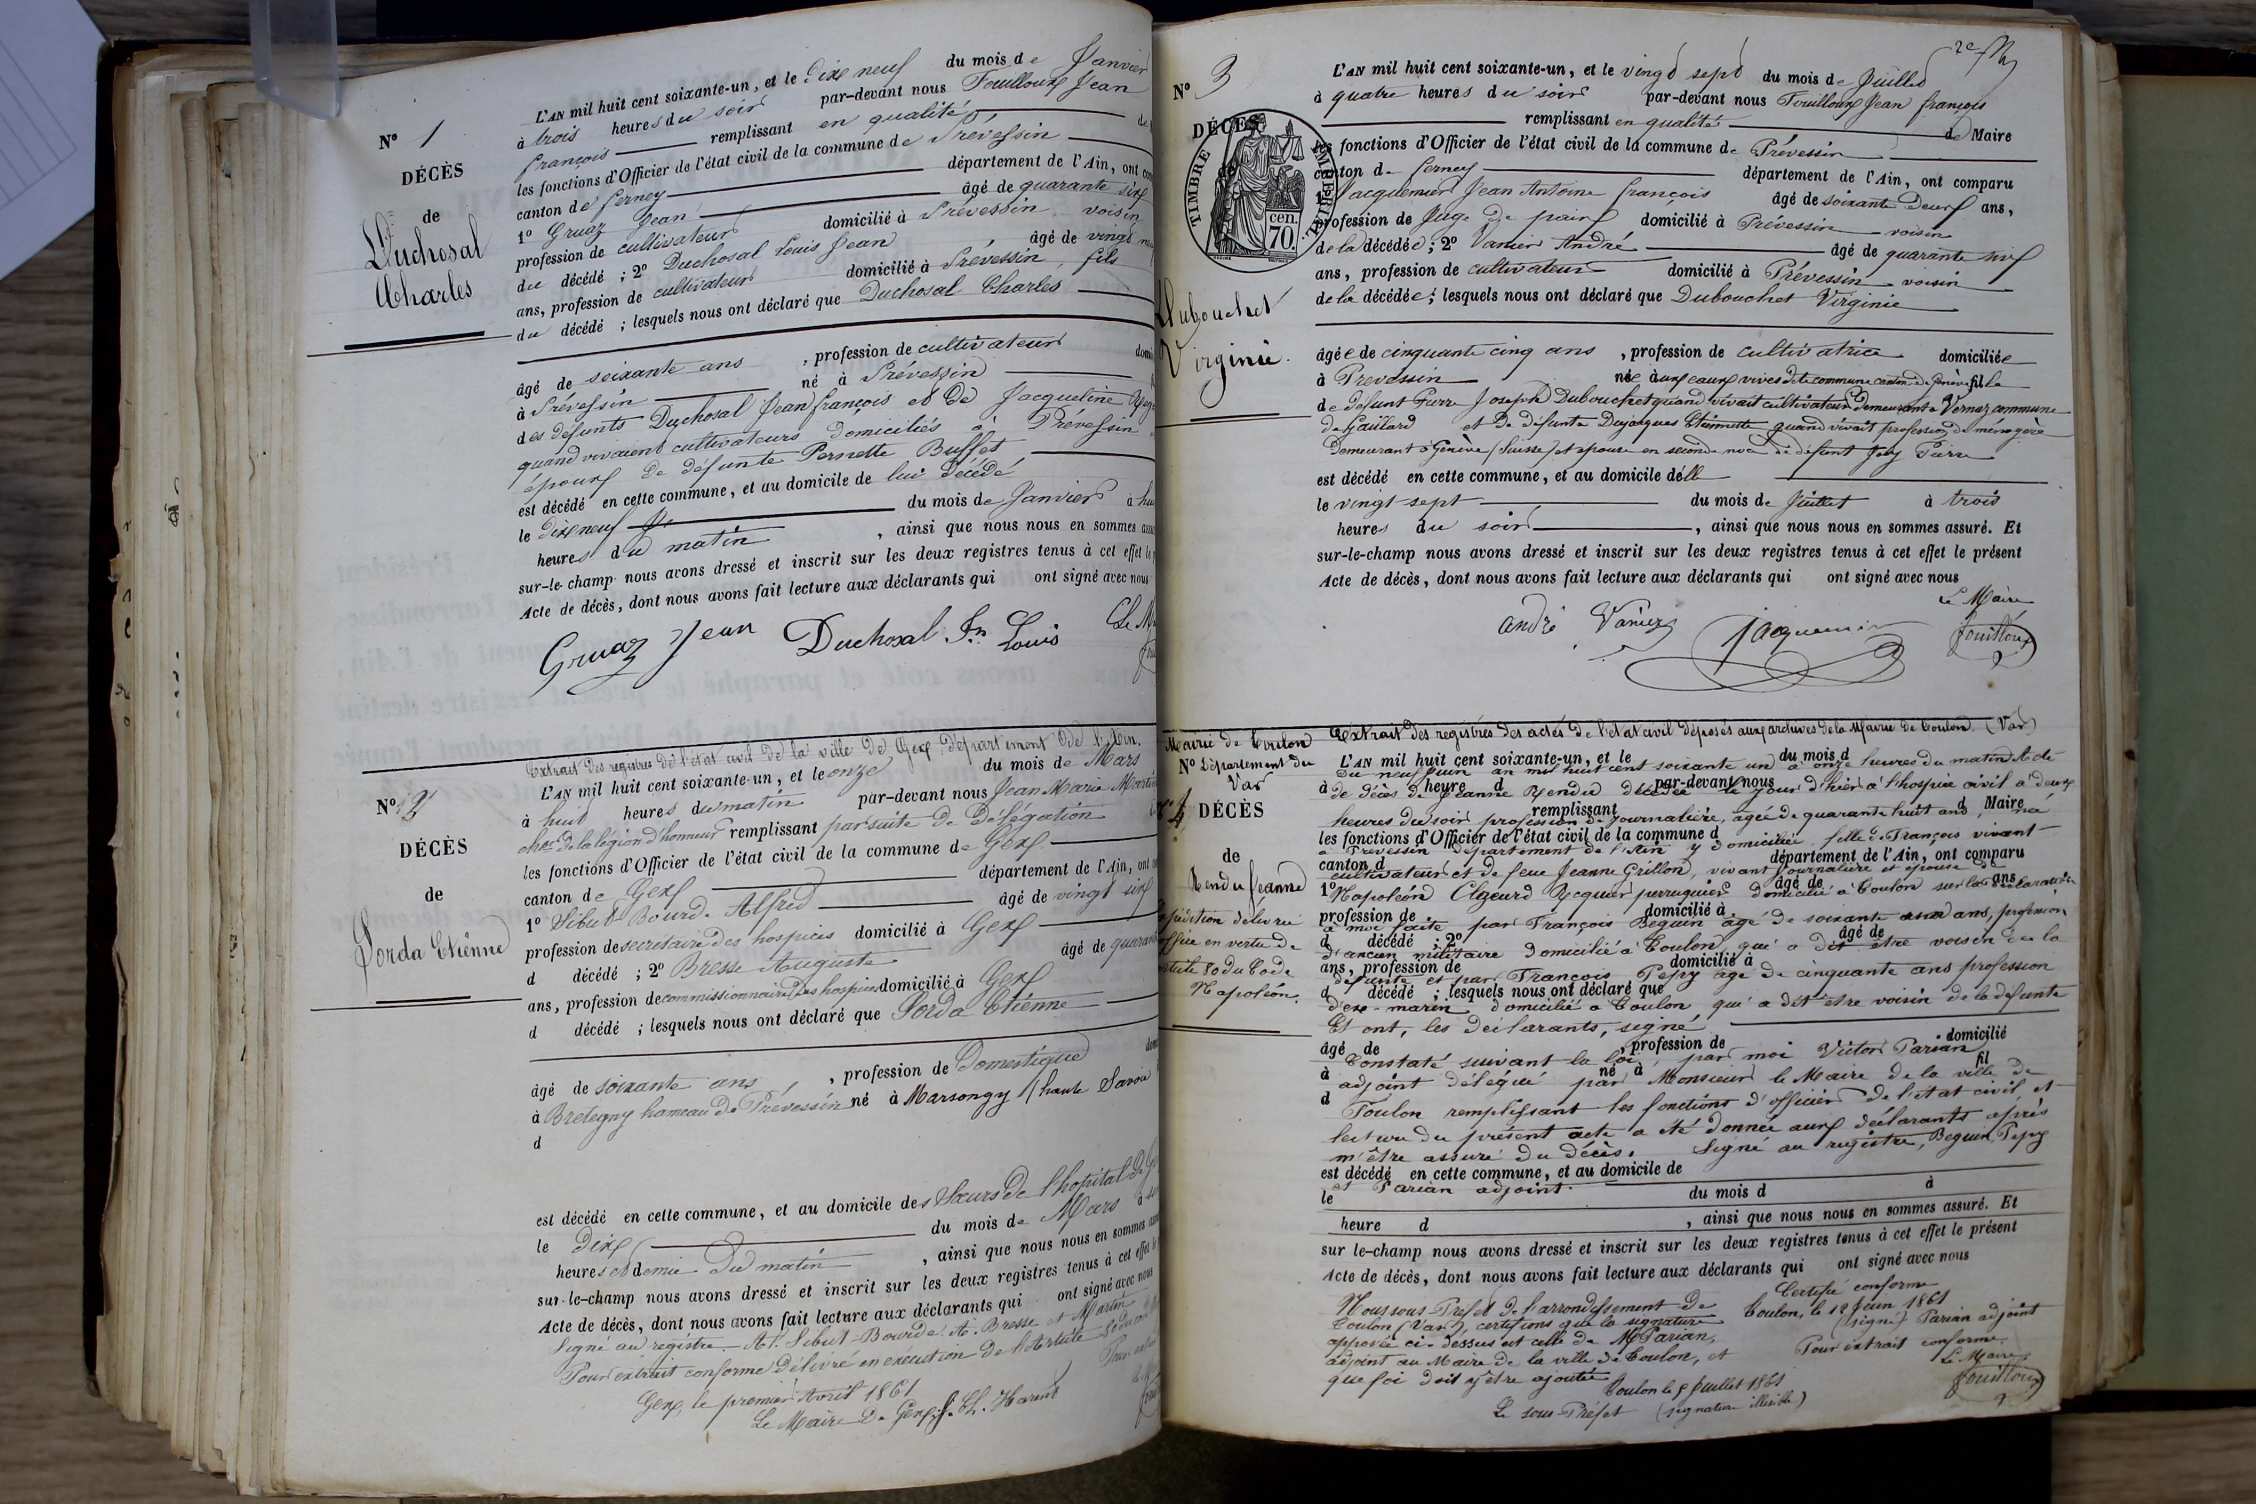 N° 1
DÉCÈS
de
Duchosal
Charles
L'AN mil huit cent soixante-un, et le dix neuf du mois de Janvier
à trois heures du soir par-devant nous Fouilloux Jean
françois remplissant en qualité de
les fonctions d'Officier de l'état civil de la commune de Prévessin
canton de ferney département de l'Ain, ont
1° Gruaz Jean âgé de quarante six
profession de cultivateur domicilié à Prévessin voisin
du décédé ; 2° Duchosal Louis Jean âgé de vingt
ans, profession de cultivateur domicilié à Prévessin, fils
du décédé ; lesquels nous ont déclaré que Duchosal Charles
âgé de soixante ans, profession de cultivateur
à Prévessin né à Prévessin
des défunts Duchosal Jean françois et de Jacqueline
quand vivaient cultivateurs domiciliés à Prévessin
époux de défunte Pernette Buffet
est décédé en cette commune, et au domicile de lui décédé
le dix neuf du mois de Janvier à
heures du matin, ainsi que nous nous en sommes
sur-le-champ nous avons dressé et inscrit sur les deux registres tenus à cet effet le
Acte de décès, dont nous avons fait lecture aux déclarants qui ont signé avec nous
Gruaz Jean Duchosal Jn Louis
Extrait des registres de l'état civil de la ville de Gex, département de l'Ain.
N° 2
DÉCÈS
de
Sorda Etiénne
L'AN mil huit cent soixante-un, et le onze du mois de Mars
à huit heures du matin par-devant nous Jean Marie
cher de la légion d'honneur remplissant par suite de délégation
les fonctions d'Officier de l'état civil de la commune de Gex
canton de Gex département de l'Ain, ont
1° Sibut-Bourde Alfred âgé de vingt six
profession de secrétaire des hospices domicilié à Gex
d décédé ; 2° Bresse Auguste âgé de
ans, profession de commissionnaire des hospices domicilié à Gex
d décédé ; lesquels nous ont déclaré que Sorda Etiénne
âgé de soixante ans, profession de Domestique
à Bretegny hameau de Prévessin né à Marsongy (haute Savoie
d
est décédé en cette commune, et au domicile des Sœurs de l'hopital de
le dix du mois de Mars à
heures et demie du matin, ainsi que nous nous en sommes
sur-le-champ nous avons dressé et inscrit sur les deux registres tenus à cet effet
Acte de décès, dont nous avons fait lecture aux déclarants qui ont signé avec nous
Signé au registre Al. Sibut-Bourde A. Bresse et Martin
Pour extrait conforme délivré en exécution de l'Article
Gex, le premier Avril 1861
Le Maire de Gex
2e
N° 3
DÉCÈS
de
TIMBRE IMPÉRIAL
70 cen.
Dubouchet
Virginie.
L'AN mil huit cent soixante-un, et le vingt sept du mois de Juillet
à quatre heures du soir par-devant nous Fouilloux Jean françois
remplissant en qualité de Maire
les fonctions d'Officier de l'état civil de la commune de Prévessin
canton de ferney département de l'Ain, ont comparu
1° Jacquemier Jean Antoine françois âgé de soixante deux ans,
profession de Juge de paix domicilié à Prévessin voisin
de la décédée ; 2° Vanier André âgé de quarante six
ans, profession de cultivateur domicilié à Prévessin voisin
de la décédée ; lesquels nous ont déclaré que Dubouchet Virginie
âgée de cinquante cinq ans, profession de cultivatrice domiciliée
à Prevessin née aux eaux vives dite commune canton de Genève fille
de défunt Pierre Joseph Dubouchet quand vivait cultivateur demeurant à Vernaz commune
de Gaillard et de défunte Dujacques Etiennette quand vivait profession de ménagère
demeurant à Genève (Suisse) et épouse en seconde noce de défunt Joly Pierre
est décédé en cette commune, et au domicile d'elle
le vingt-sept du mois de Juillet à trois
heures du soir, ainsi que nous nous en sommes assuré. Et
sur-le-champ nous avons dressé et inscrit sur les deux registres tenus à cet effet le présent
Acte de décès, dont nous avons fait lecture aux déclarants qui ont signé avec nous
Le Maire
andré Vanier Jacquemier Fouilloux
Extrait des registres des actes de l'état civil déposés aux archives de la Mairie de Toulon (Var)
Mairie de Toulon
N° Département du
Var
N° 4 DÉCÈS
de
Rendu Jeanne
Expédition délivrée
office en vertu de
article 80 du Code
Napoléon.
L'AN mil huit cent soixante-un, et le du mois d
Du neuf Juin an mil huit cent soixante un à onze heures du matin Acte
à heure d par-devant nous
de décès de Jeanne Rendu décédée le jour d'hier à l'hospice civil à deux
remplissant d Maire
heures du soir profession de journalière, agée de quarante huit ans, né
les fonctions d'Officier de l'état civil de la commune d
à Prevessin département de l'Ain y domiciliée, fille de François vivant
canton d département de l'Ain, ont comparu
cultivateur et de feue Jeanne Grillon, vivant journalière et épouse de
1° âgé de ans,
Napoléon perruquier domicilié à Toulon sur la déclaration
profession de domicilié à
à moi faite par François Beguin âgé de soixante ans, profession
d décédé ; 2° âgé de
d'ancien militaire domicilié à Toulon, qui a dit être voisin de la
ans, profession de domicilié à
défunte et par François Pepy âgé de cinquante ans profession
d décédé ; lesquels nous ont déclaré que
d'ex-marin domicilié à Toulon, qui a dit être voisin de la défunte
Et ont, les déclarants, signé
âgé de, profession de domicilié
Constaté suivant la loi, par moi Victor Parian
à né à fil
adjoint délégué par Monsieur le Maire de la ville de
d
Toulon remplissant les fonctions d'officier de l'état civil, et
lecture du présent acte a été donnée aux déclarants après
m'être assuré du décès. Signé au registre, Beguin, Pepy
est décédé en cette commune, et au domicile de
et Parian adjoint.
le du mois d à
heure d, ainsi que nous nous en sommes assuré. Et
sur le-champ nous avons dressé et inscrit sur les deux registres tenus à cet effet le présent
Acte de décès, dont nous avons fait lecture aux déclarants qui ont signé avec nous
Certifié conforme
Nous sous-Préfet de l'arrondissement de Toulon, le 12 Juin 1861
Toulon (Var), certifions que la signature (signé) Parian adjoint
apposée ci-dessus est celle de M Parian,
adjoint au Maire de la ville de Toulon, et Pour extrait conforme
que foi doit y être ajoutée Le Maire
Toulon le 5 Juillet 1861 Fouilloux
Le sous-Préfet (signature illisible)